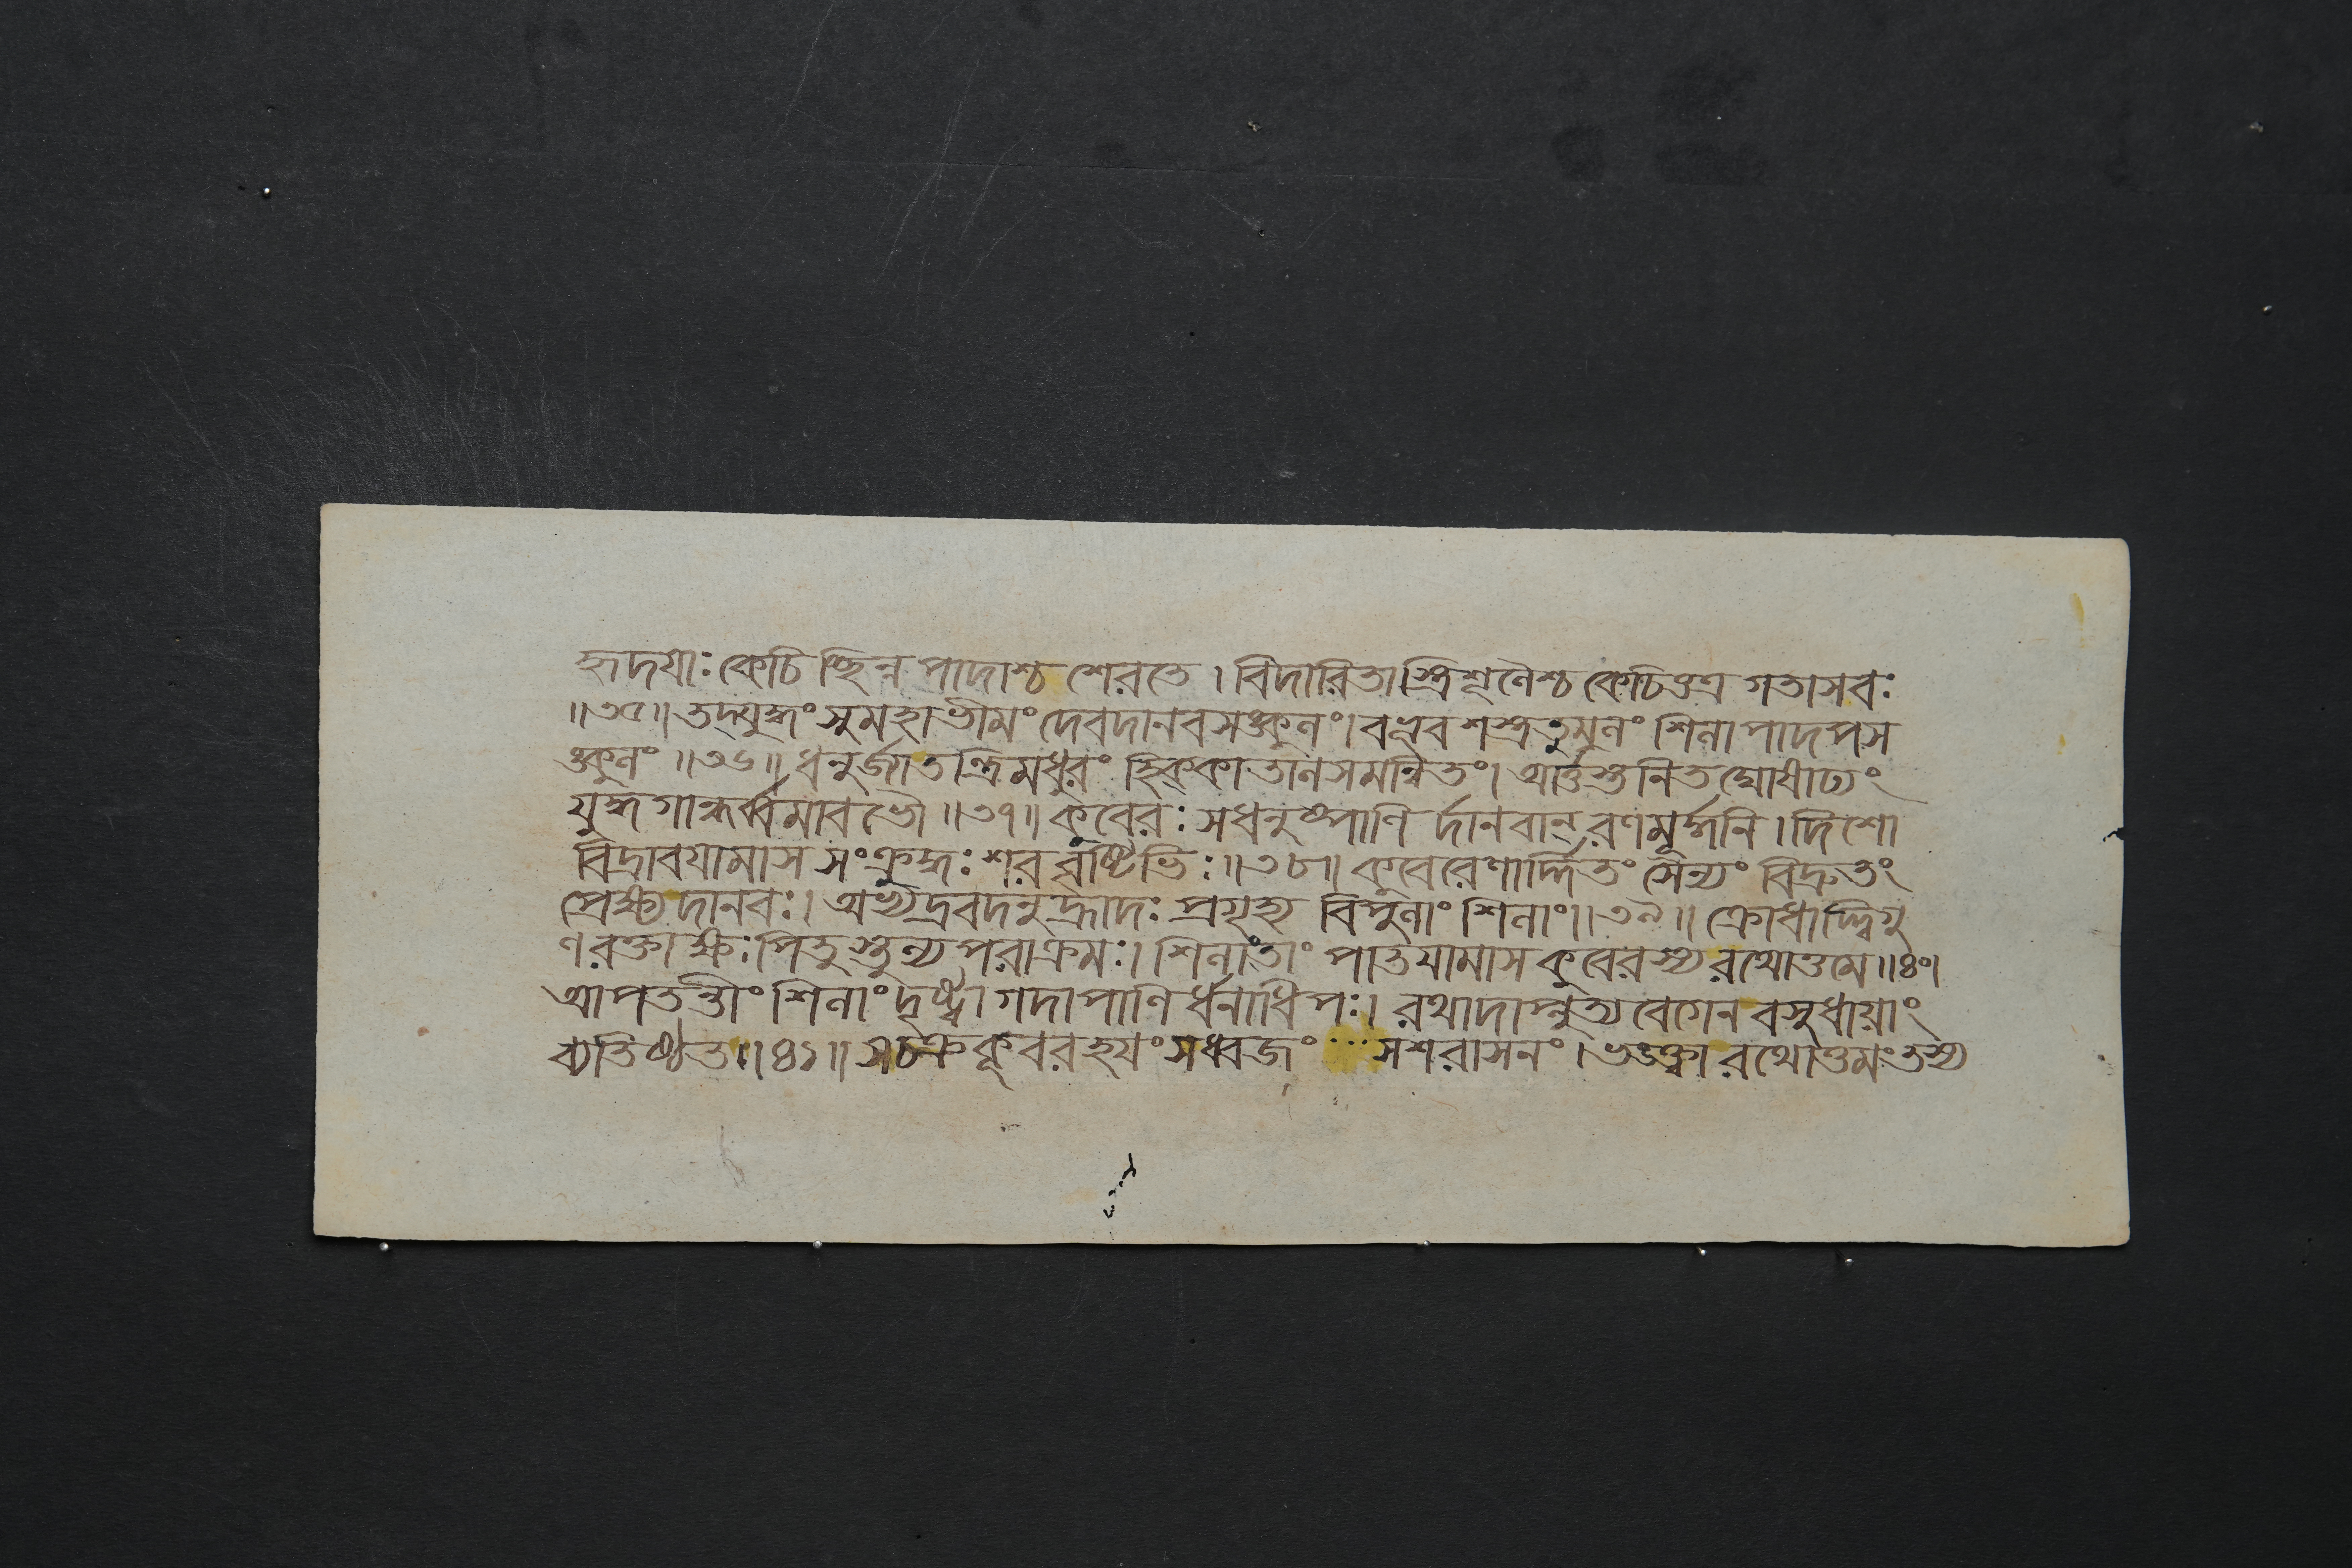 হৃদয়াঃ কেচিচ্ছিন্নপাদাশ্চ শেরতে । বিদারিতাস্ত্রিশূলৈশ্চ কেচিত্তত্র গতাসবঃ
॥৩৫॥ তদ্যুদ্ধং সুমহাভীমং দেবদানবসঙ্কুলং। বভূব শস্ত্রতুমুলং শিলাপাদপস
ঙ্কুলং ॥৩৬॥ ধনুর্জ্যাতন্ত্রিমধুরং হিক্কাতালসমন্বিতং। আর্ত্তস্তনিতঘোষাঢ্যং
যুদ্ধগান্ধর্ব্বমাবভৌ ॥৩৭॥ কুবেরঃ সধনুষ্পাণির্দানবান্ রণমূর্দ্ধনি । দিশো
বিদ্রাবয়ামাস সংক্রুদ্ধঃ শরবৃষ্টিভিঃ ॥৩৮॥ কুবেরেণার্দ্দিতং সৈন্যং বিদ্রুতং
প্রেক্ষ্য দানবঃ। অভ্যদ্রবদনুহ্রাদঃ প্রগৃহ্য বিপুলাং শিলাং॥৩৯॥ ক্রোধাদ্দ্বিগু
ণরক্তাক্ষঃ পিতুস্তুল্যপরাক্রমঃ। শিলাং তাং পাতয়ামাস কুবেরস্য রথোত্তমে॥৪০।
আপতন্তীং শিলাং দৃষ্ট্বা গদাপাণির্ধনাধিপঃ। রথাদাপ্লুত্য বেগেন বসুধায়াং
ব্যতিষ্ঠত॥৪১॥ সচক্রকূবরহয়ং সধ্বজং সশরাসনং । ভঙ্ক্ত্বা রথোত্তমং তস্য